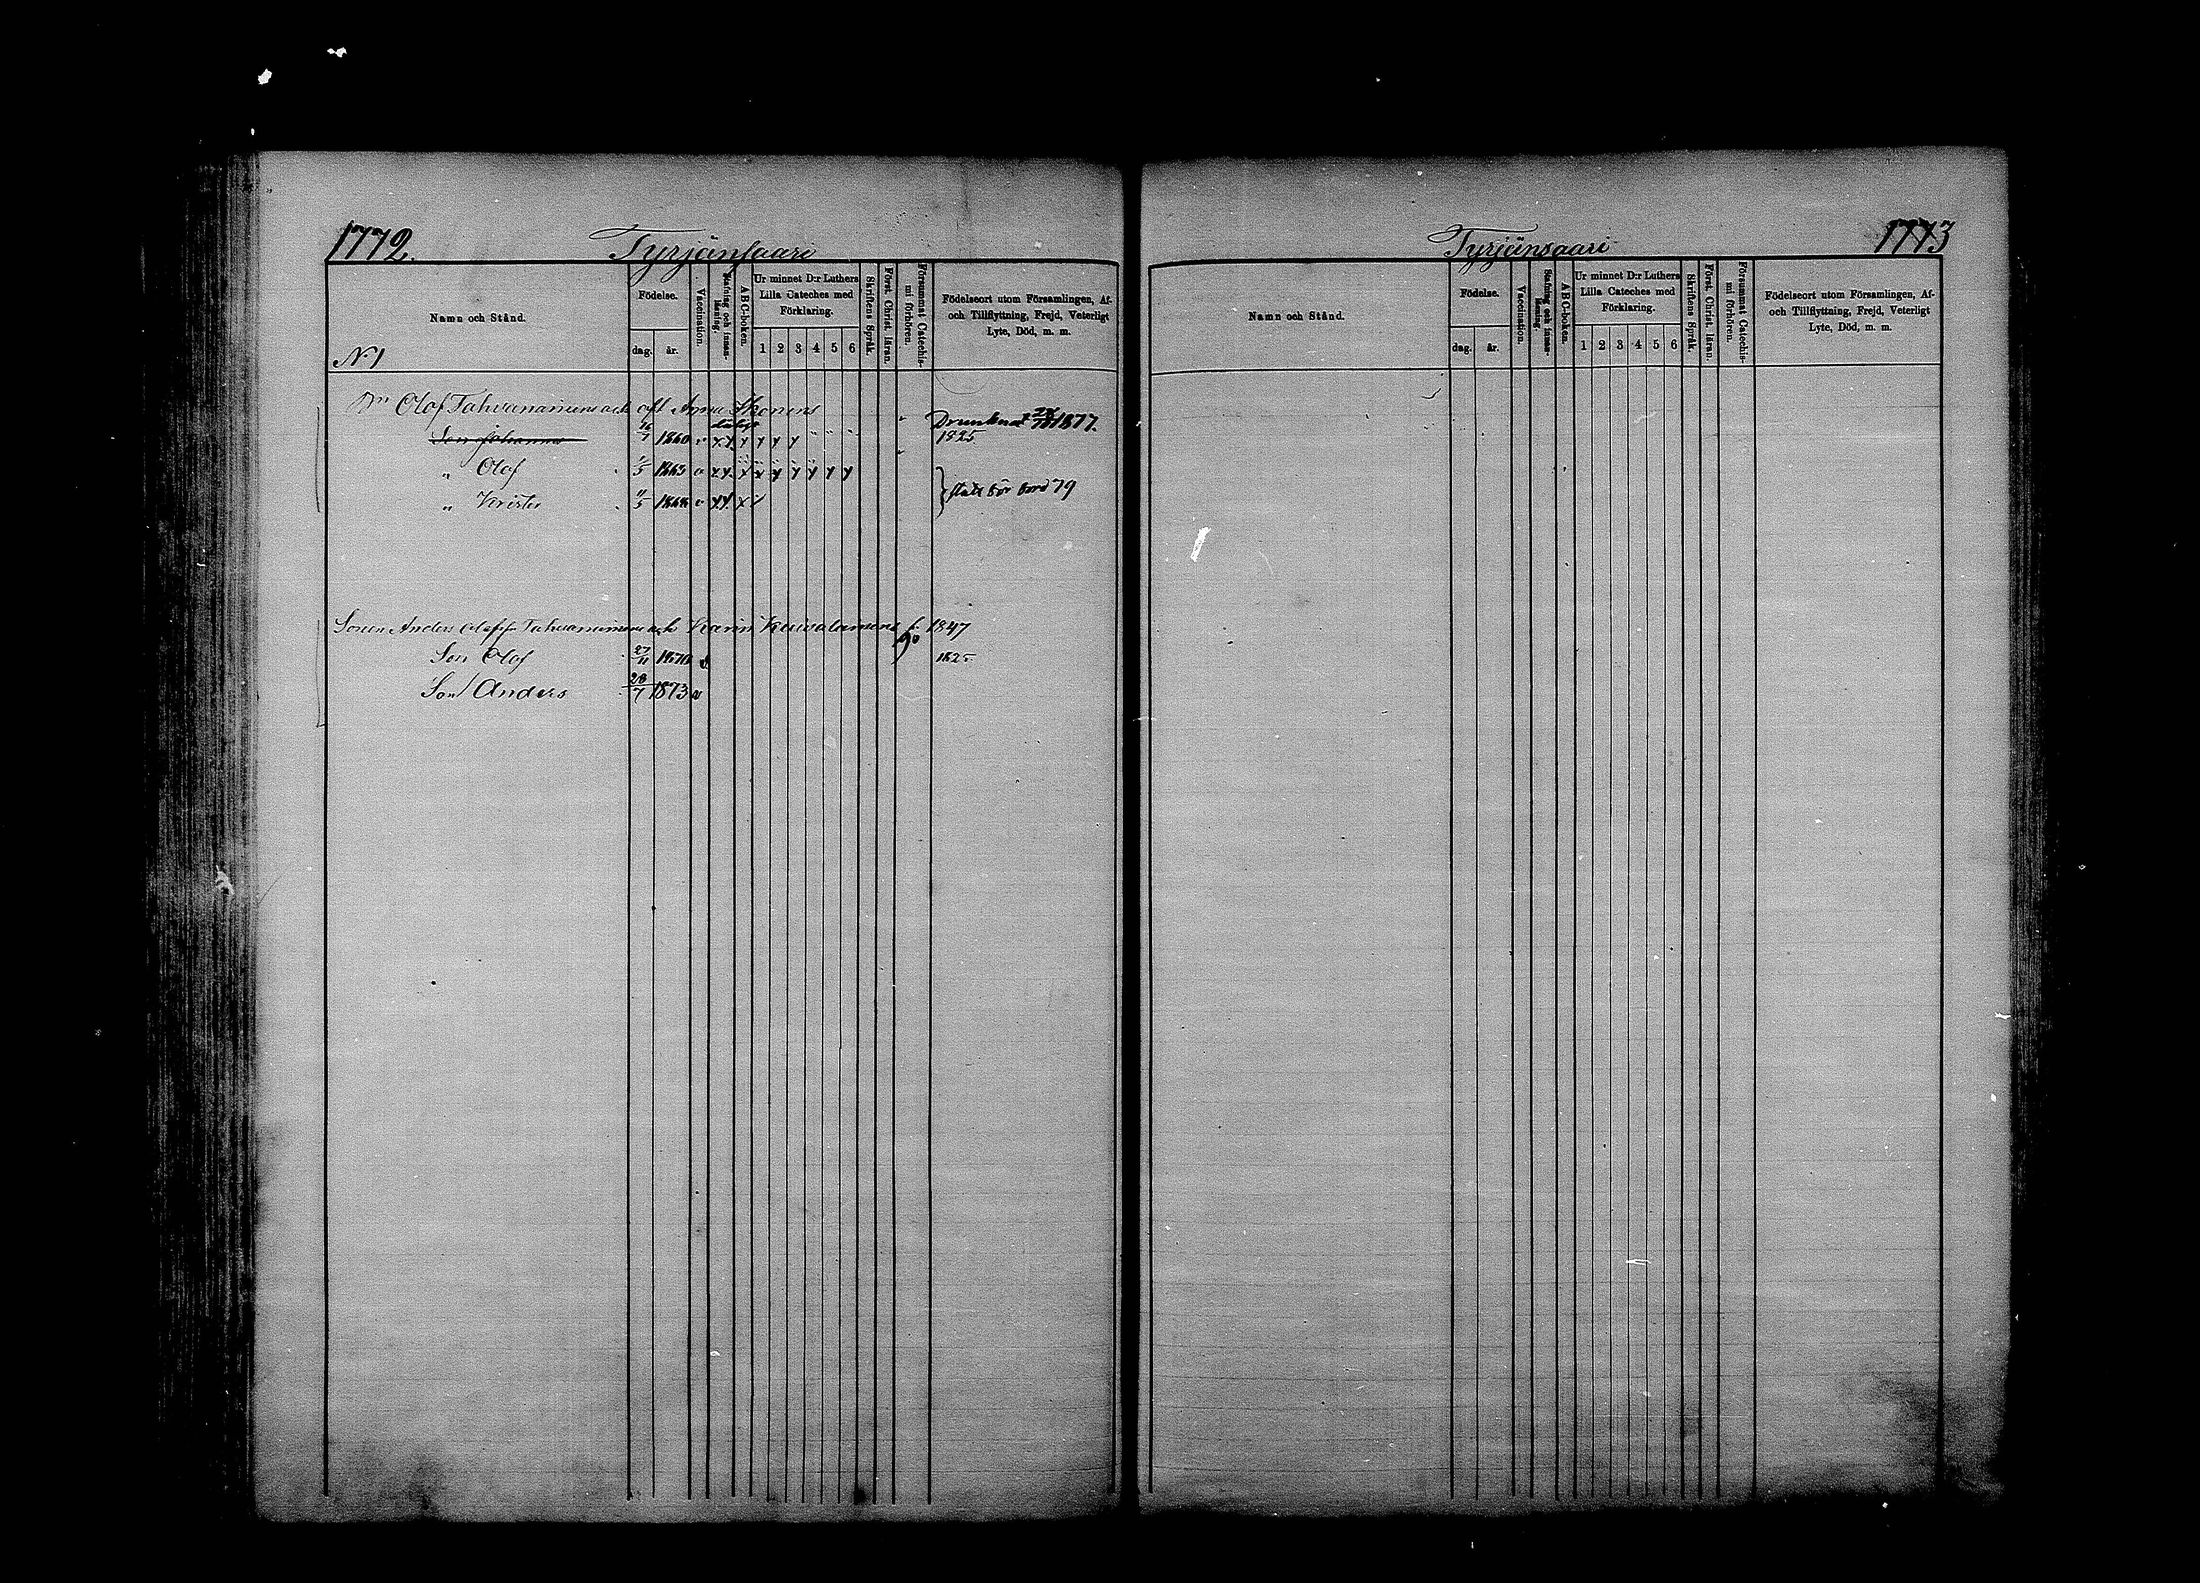 1772.
Tyrjänsaari
Namn och Stånd.
Födelse.
dag. år.
Vaccination.
Stafning och innanläsning.
A B C-boken.
Ur minnet D:r Luthers Lilla Cateches med Förklaring.
1 2 3 4 5 6
Skriftens Språk.
Först. Christ. läran.
Försummat Catechismi förhören.
Födelseort utom Församlingen, Af- och Tillflyttning, Frejd, Veterligt Lyte, Död, m. m.
N:1
Olof Tahvanainens och aft Anna Ikonens
Drunknat 1877.
Son Johannes 1860 1825
" Olof 1863
" Krister
79
Sonen Anders Olofss. Tahvanainens och Karin Kuivalainens f. 1847
Son Olof 27/11 1870 1825
Son Anders 28/7 1873
1773
Tyrjänsaari
Namn och Stånd.
Födelse.
dag. år.
Vaccination.
Stafning och innanläsning.
A B C-boken.
Ur minnet D:r Luthers Lilla Cateches med Förklaring.
1 2 3 4 5 6
Skriftens Språk.
Först. Christ. läran.
Försummat Catechismi förhören.
Födelseort utom Församlingen, Af- och Tillflyttning, Frejd, Veterligt Lyte, Död, m. m.